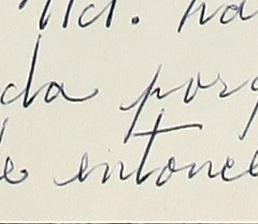 Ud. ha
da porq
de entonce